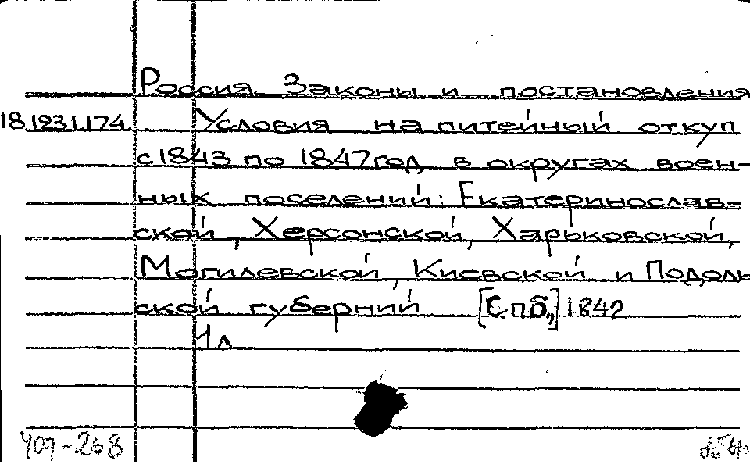 Россия. Закони и постановления
18.1931.174 Условия на питейный откуп
с 1843 по 1847 год в округах воен-
ных поселений: Екатеринослав-
ской, Херсонской, Харьковской,
Могилевской, Киевской и Подоль
ской губерний [С.пб.,] 1842
1 л
407-268